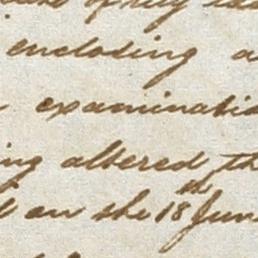 of my
enclosing a
examinatio
ing altered th
on the 18th June